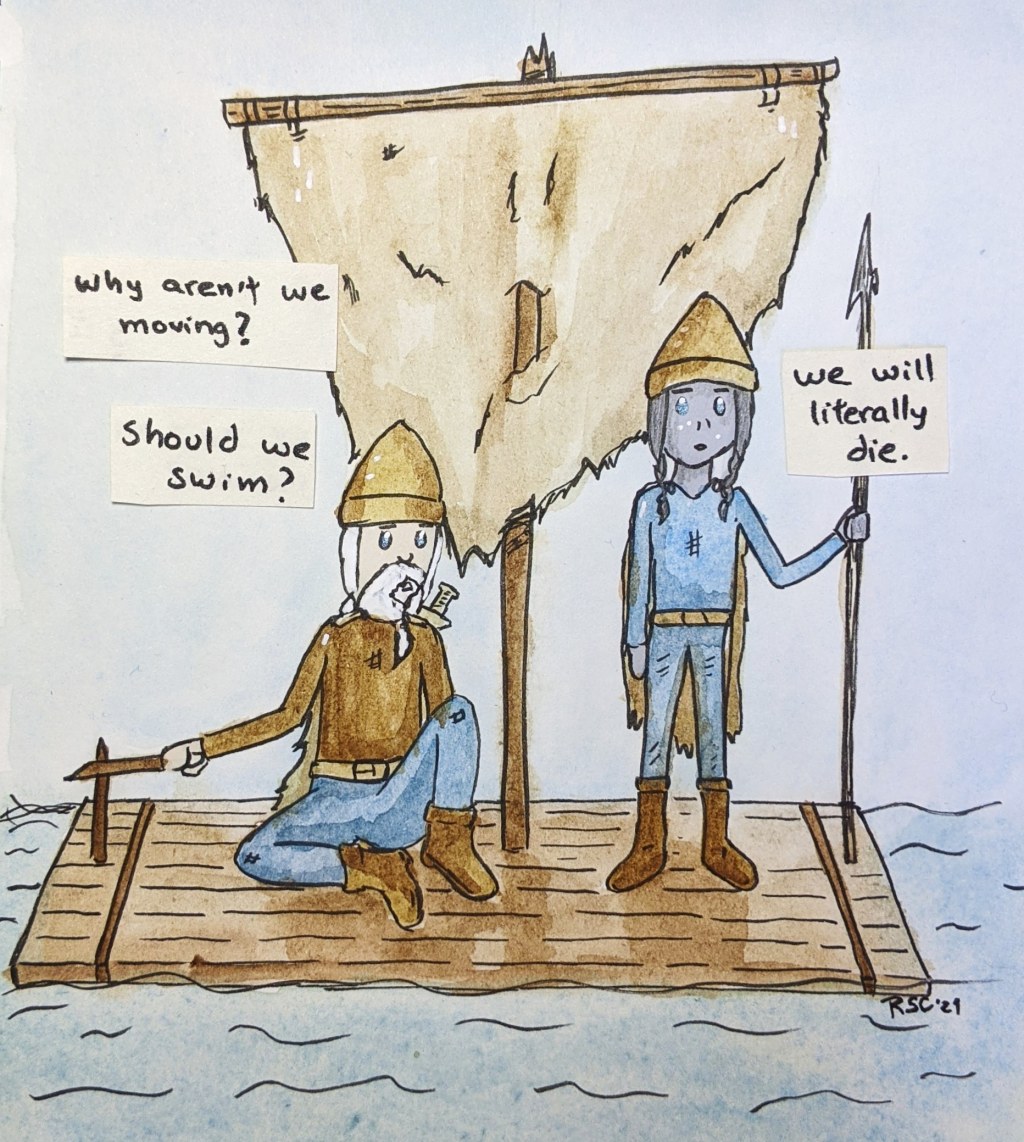 why aren't we
moving?
Should we
swim?
we will
literally
die.
RSC '21